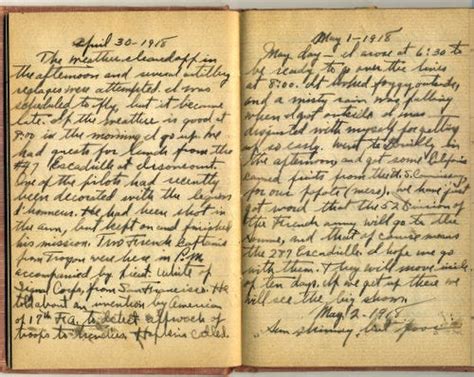 April 30 - 1918
The weather cleared off in
the afternoon and several artillery
reglages were attempted. I was
scheduled to fly, but it became
late. If the weather is good at
8:00 in the morning I go up. We
had guests for lunch from the
Escadrille at
One of the pilots had recently
been decorated with the legion
d'honneur. He had been shot in
the arm, but kept on and finished
his mission. Two French Captains
from Troyon were here in P.M.
accompanied by Lieut. White of
Signal Corps, from San Francisco. He
told about an invention by American
of 17th F.A. to detect approach of
troops to trenches. Hopkins called.
May 1 - 1918
May day - I arose at 6:30 to
be ready to go over the lines
at 8:00. It looked foggy outside,
and a misty rain was falling
when I got outside. I was
disgusted with myself for getting
up so early. Went to in
the afternoon, and got some
canned fruits from the U.S. Commissary
for our popote (mess). We have just
got word that the 52 Division of
the French army will go to the
Somme, and that of course means
the 277 Escadrille. I hope we go
with them. They will move inside
of ten days. If we get up there we
will see the big show.
May 2 - 1918
Sun shining, but